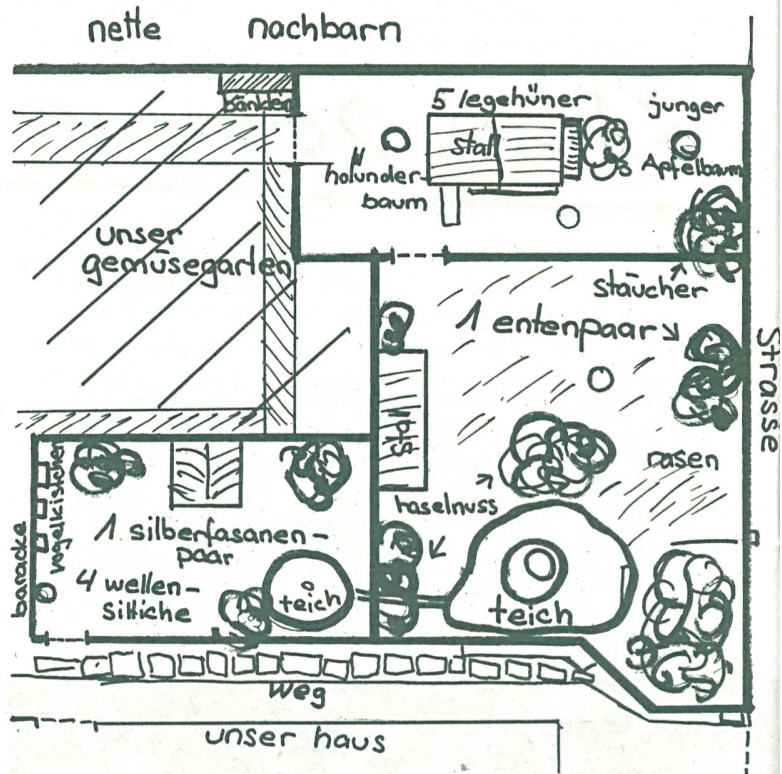 nette nachbarn
bänklein
5 legehüner
junger
Apfelbaum
stall
holunder-
baum
unser
gemüsegarten
stäucher
1 entenpaar
Strasse
stall
rasen
haselnuss
baracke
vogelkistchen
1 silberfasanen-
paar
4 wellen-
sittiche
teich
teich
Weg
unser haus